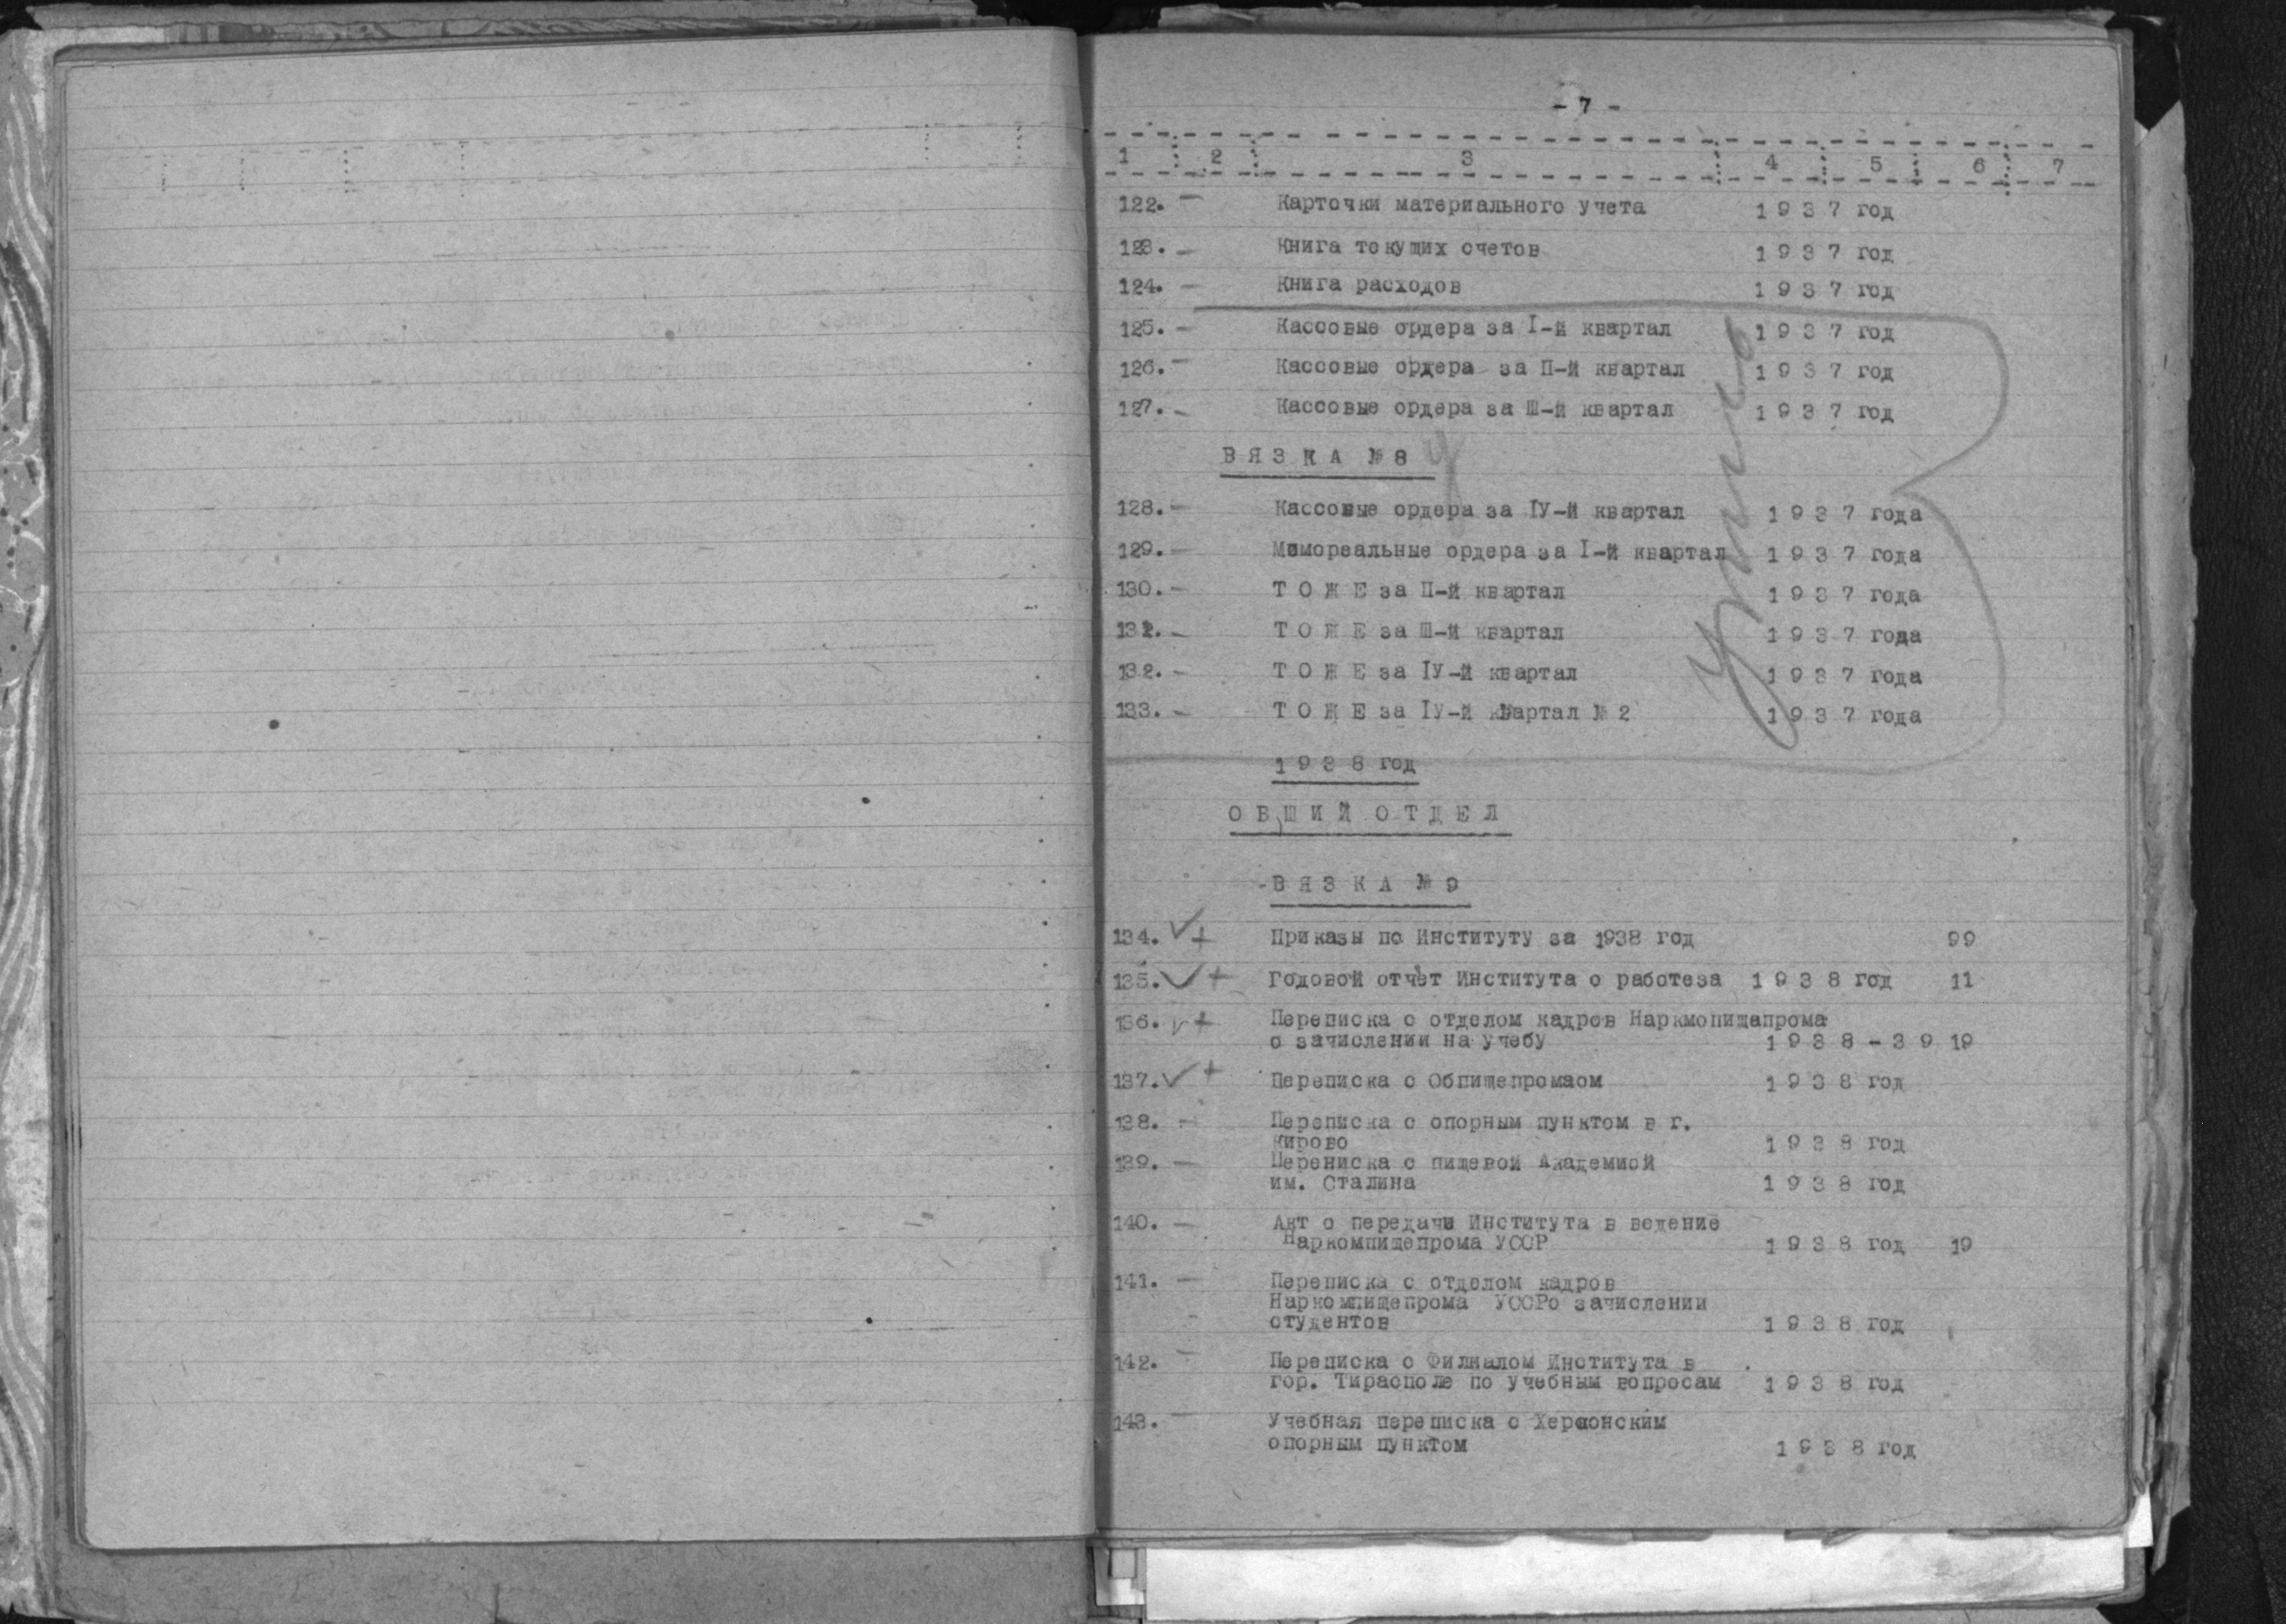 - 7 -
1 2 3 4 5 6 7
122. — Карточки материального учета 1 9 3 7 год
123. — Книга текущих счетов 1 9 3 7 год
124. — Книга расходов 1 9 3 7 год
125. — Кассовые ордера за I-й квартал 1 9 3 7 год
126. — Кассовые ордера за П-й квартал 1 9 3 7 год
127. — Кассовые ордера за Ш-й квартал 1 9 3 7 год
В Я З К А № 8
128. — Кассовые ордера за IУ-й квартал 1 9 3 7 года
129. — Мемореальные ордера за I-й квартал 1 9 3 7 года
130. — Т О Ж Е за П-й квартал 1 9 3 7 года
131. — Т О Ж Е за Ш-й квартал 1 9 3 7 года
132. — Т О Ж Е за IУ-й квартал 1 9 3 7 года
133. — Т О Ж Е за IУ-й квартал № 2 1 9 3 7 года
1 9 3 8 год
О Б Щ И Й О Т Д Е Л
-В Я З К А № 9
134. ✓+ Приказы по Институту за 1938 год 99
135. ✓+ Годовой отчёт Института о работеза 1 9 3 8 год 11
136. ✓+ Переписка с отделом кадров Наркмопищапрома
о зачислении на учебу 1 9 3 8 - 3 9 19
137. ✓+ Переписка с Обпищепромаом 1 9 3 8 год
138. — Переписка с опорным пунктом в г.
Кирово 1 9 3 8 год
139. — Переписка с пищевой Академией
им. Сталина 1 9 3 8 год
140. — Акт о передаче Института в ведение
Наркомпищепрома УССР 1 9 3 8 год 19
141. — Переписка с отделом кадров
Наркомпищепрома УССРо зачислении
студентов 1 9 3 8 год
142. — Переписка с Филиалом Института в
гор. Тирасполе по учебным вопросам 1 9 3 8 год
143. — Учебная переписка с Херсонским
опорным пунктом 1 9 3 8 год